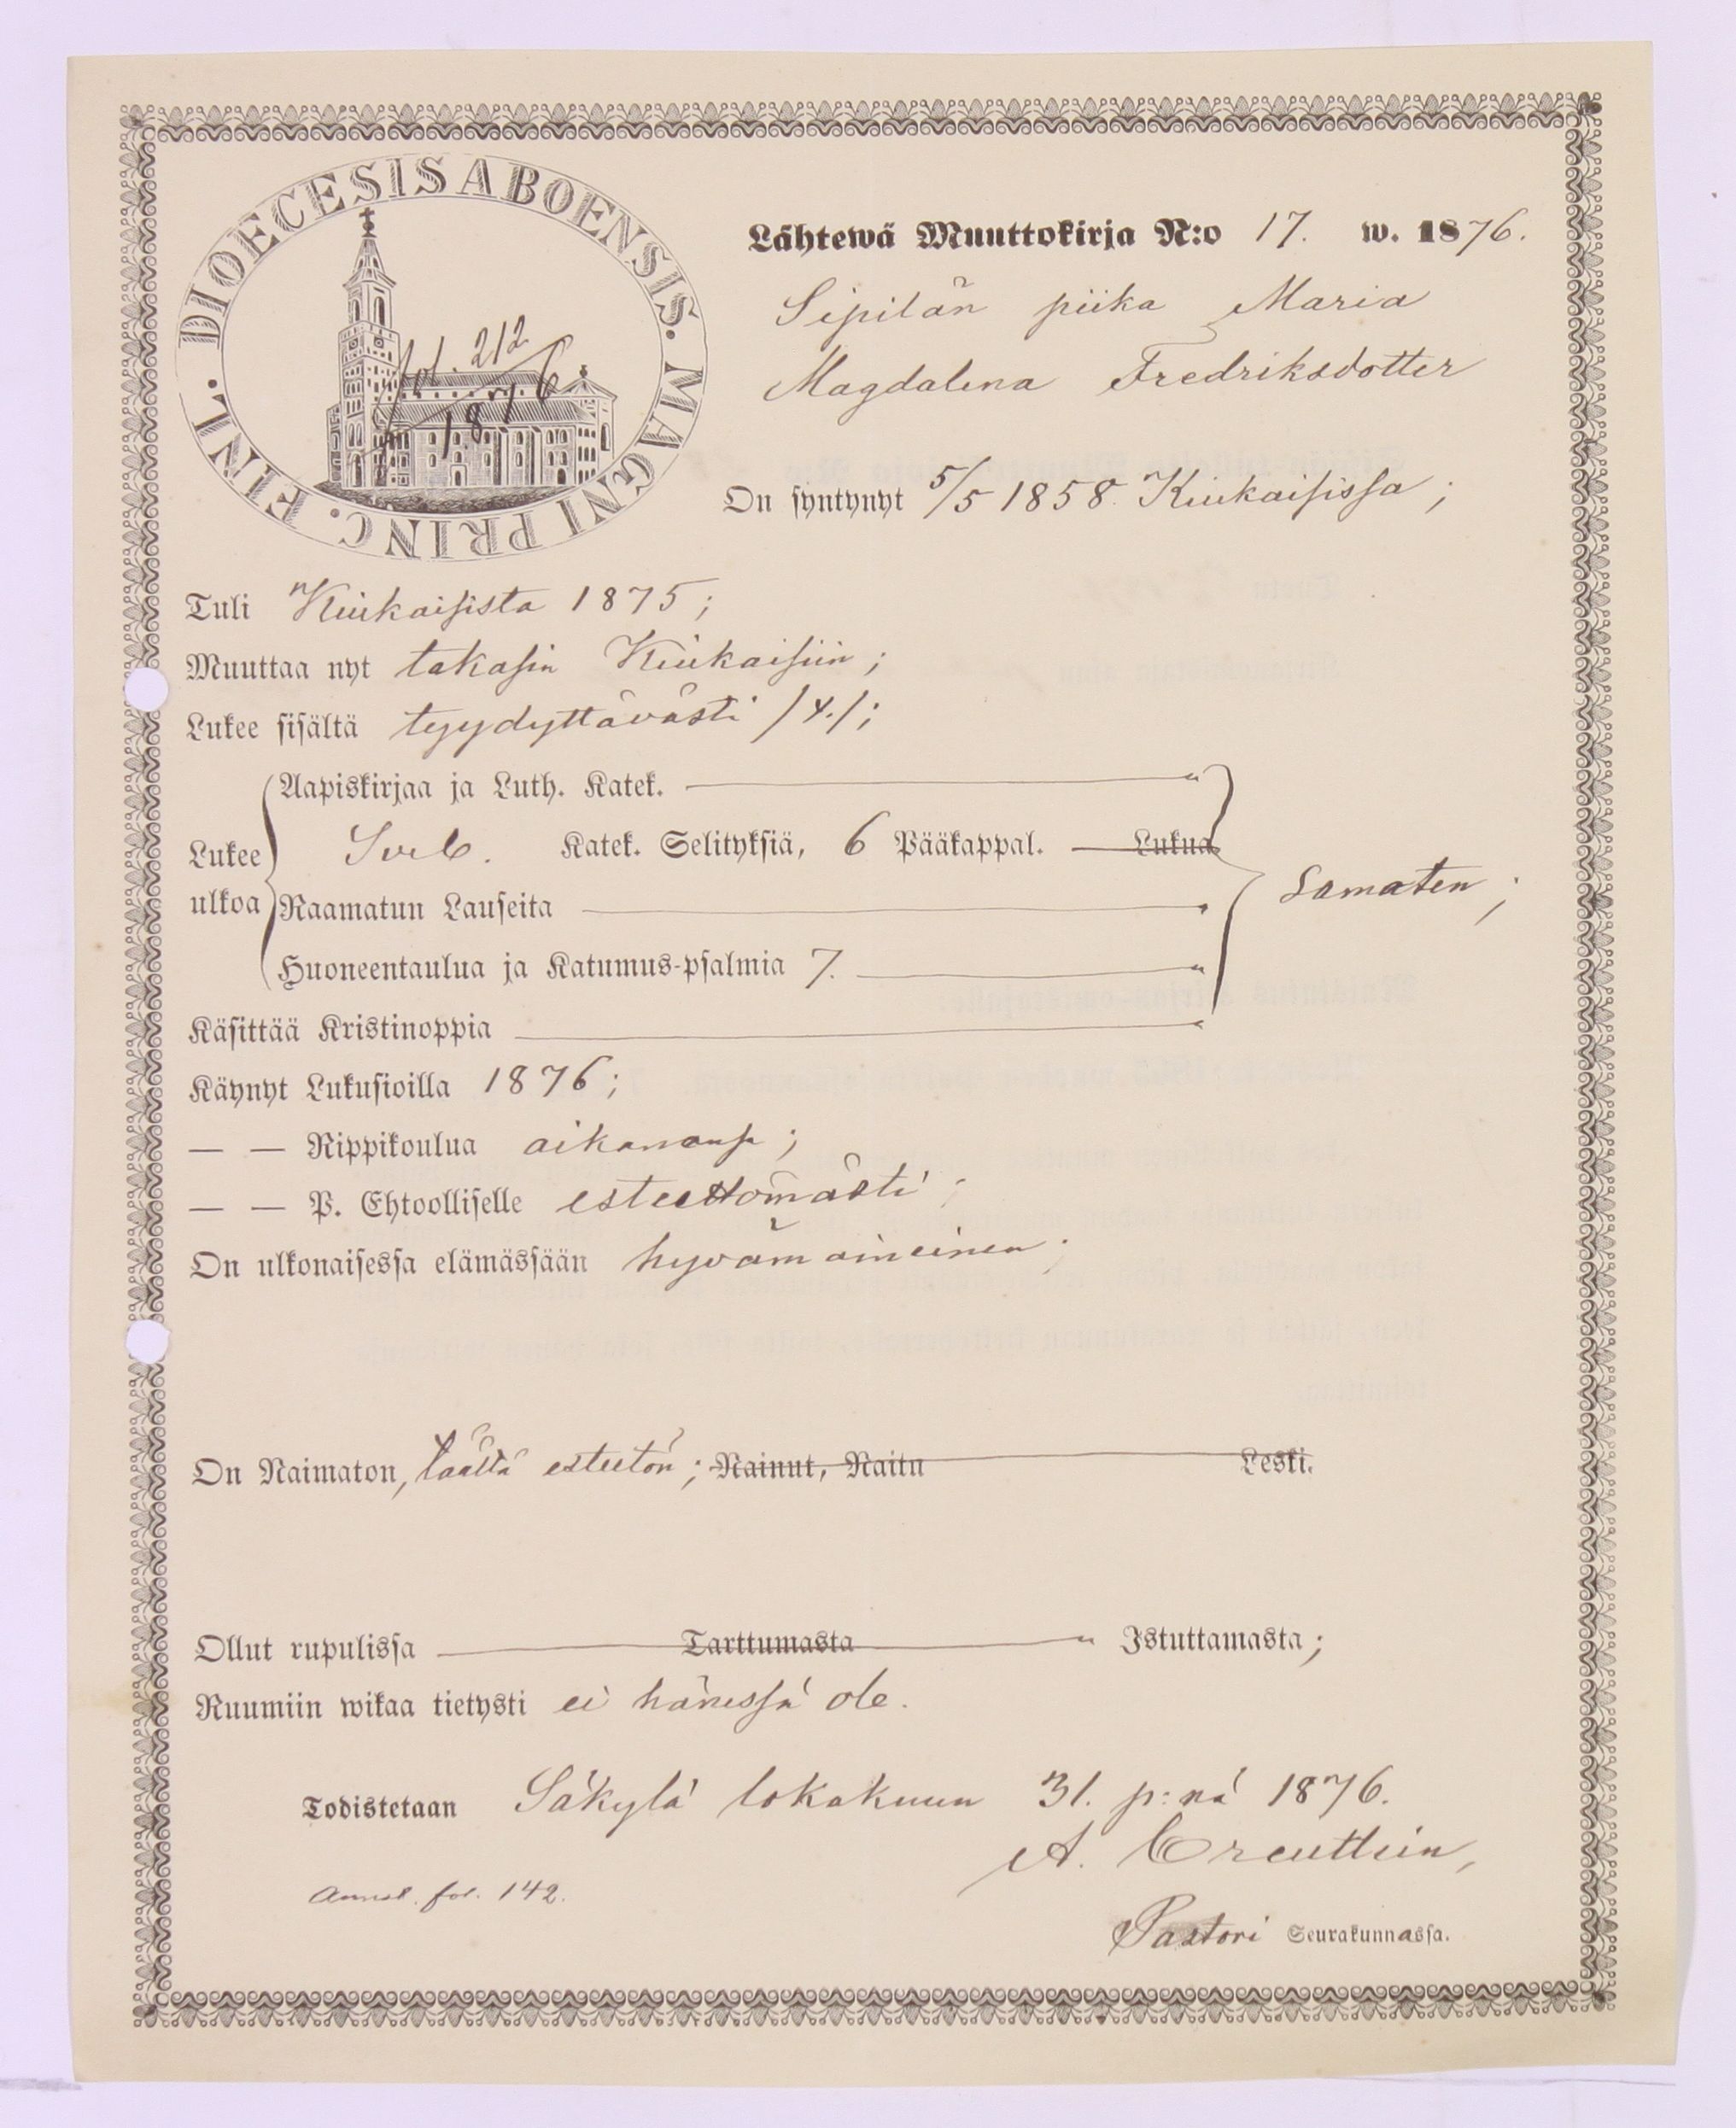 DIOECESIS ABOENSIS. MAGNI PRINC. FINL.
fol. 212
1876
Lähtewä Muuttokirja N:o 17. w. 1876.
Sipilän piika Maria
Magdalena Fredriksdotter
On syntynyt 5/5 1858. Kiukaisissa;
Tuli Kiukaisista 1875;
Muuttaa nyt takasin Kiukaisiin;
Lukee sisältä tyydyttävästi /4./;
Aapiskirjaa ja Luth. Katek.
Lukee ulkoa
Sveb. Katek. Selityksiä, 6 Pääkappal. Lukua
Raamatun Lauseita
Samaten;
Huoneentaulua ja Katumus-psalmia 7.
Käsittää Kristinoppia
Käynyt Lukusioilla 1876;
— — Rippikoulua aikanansa;
— — P. Ehtoolliselle esteettömästi;
On ulkonaisessa elämässään hyvämaineinen;
On Naimaton, täältä esteetön; Nainut, Naitu Leski.
Ollut rupulissa Tarttumasta Istuttamasta;
Ruumiin wikaa tietysti ei hänessä ole.
Todistetaan Säkylä lokakuun 31. p:nä 1876.
A. Creutlein,
fol. 142.
Pastori Seurakunnassa.